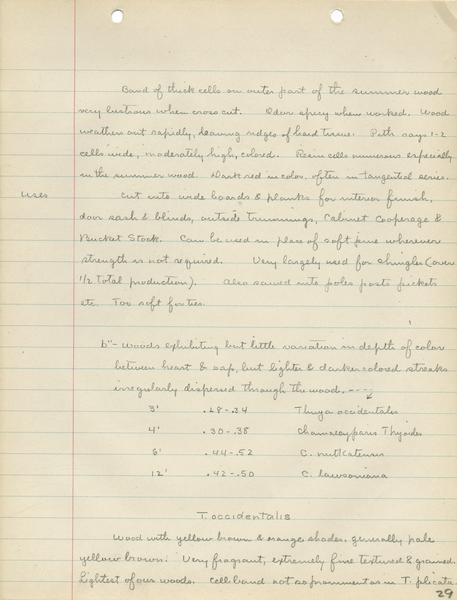 Band of thick cells on outer part of the summer wood
very lustrous when cross cut. Odor spicy when worked. Wood
weathers out rapidly, leaving ridges of hard tissue. Pith rays 1-2
cells wide, moderately high, colored. Resin cells numerous especially
in the summer wood. Dark red in color. often in tangential series.
Uses
Cut into wide boards & planks for interior finish,
door sash & blinds, outside trimmings, Cabinet Cooperage &
Bucket Stock. Can be used in place of soft pine wherever
strength is not required. Very largely used for shingles (over
1/2 total production). Also sawed into poles posts pickets
etc. Too soft for ties.
b"- Woods exhibiting but little variation in depth of color
between heart & sap, but lighter & darker colored streaks
irregularly dispersed through the wood. ----
3' .28-.34 Thuya occidentalis
4' .30-.38 Chamaecyparis Thyoides
6' .44-.52 C. nutkatensis
12' .42-.50 C. lawsoniana
T. occidentalis
Wood with yellow brown & orange shades. generally pale
yellow brown. Very fragrant, extremely fine textured & grained.
Lightest of our woods. Cell band not so prominent as in T. plicata.
29